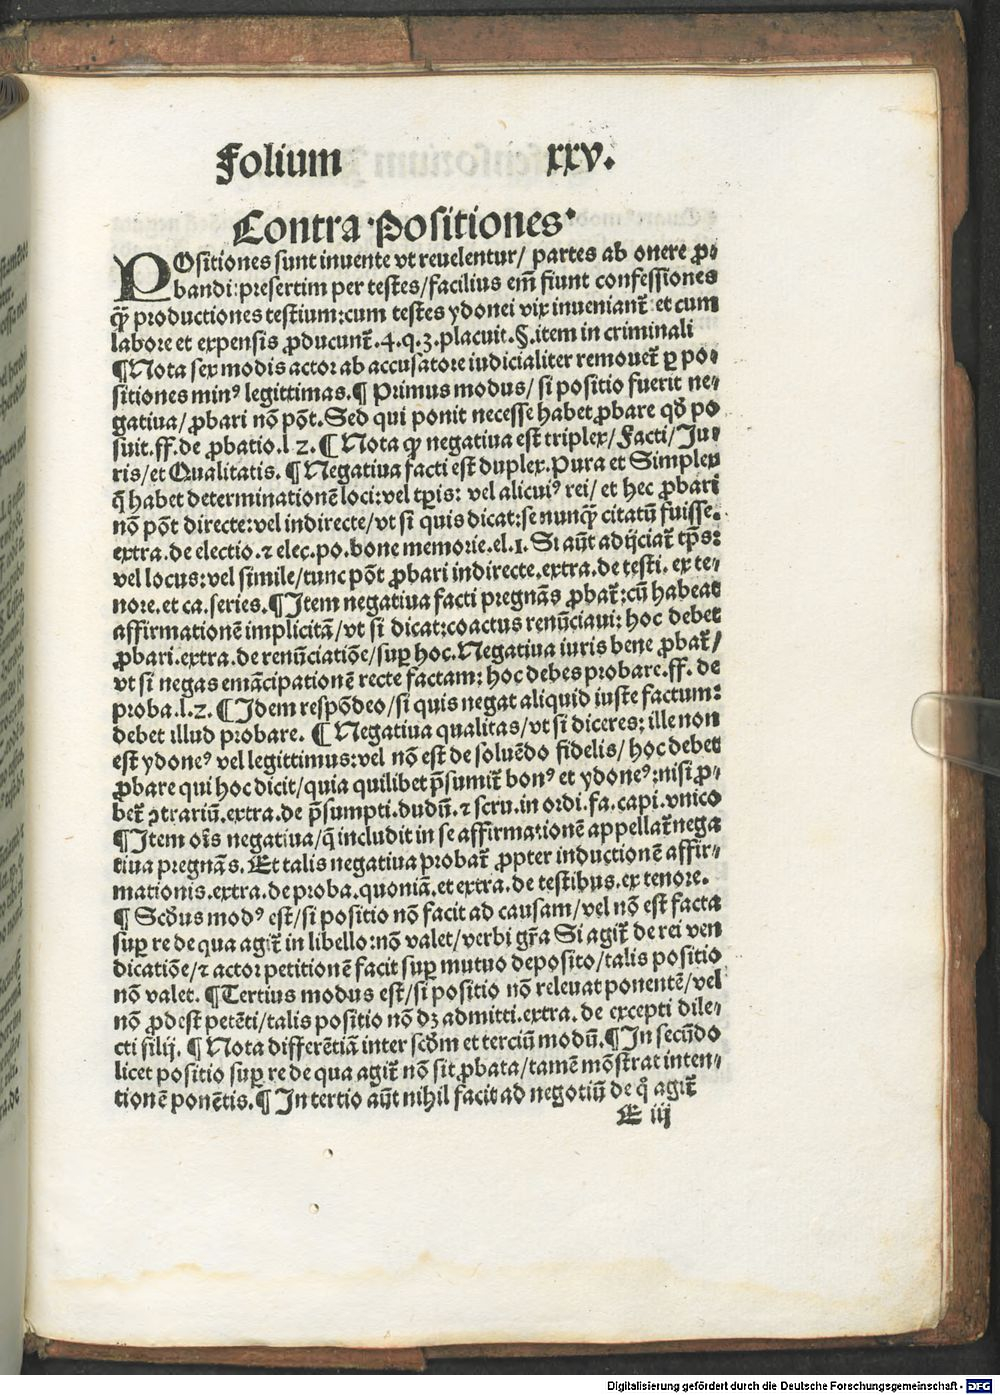 Folium xxv.
Contra Positiones
POsitiones sunt inuente vt reuelentur/ partes ab onere ꝓ⸗
bandi: presertim per testes/facilius em̄ fiunt confessiones
qꝫ̄ productiones testium: cum testes ydonei vix inueniant᷑ et cum
labore et expensis ꝓducunt᷑.4.q.3.placuit.§.item in criminali
¶Nota sex modis actor ab accusatore iudicialiter remouet᷑ ꝑ po⸗
sitiones minꝰ legittimas.¶ Primus modus/ si positio fuerit ne⸗
gatiua/ ꝓbari nō pōt. Sed qui ponit necesse habet ꝓbare qđ po
suit.ff.de ꝓbatio.l 2.¶ Nota ꝙ negatiua est triplex/ Facti/ Iu⸗
ris/ et Qualitatis.¶ Negatiua facti est duplex. Pura et Simplex
q̄ habet determinationē loci: vel tꝑis: vel alicuiꝰ rei/ et hec ꝓbari
nō pōt directe: vel indirecte/ vt si quis dicat: se nunqꝫ̄ citatū fuisse.
extra.de electio.⁊ elec.po.bone memorie.el.1. Si aūt adijciat᷑ tp̄s:
vel locus: vel simile/tunc pōt ꝓbari indirecte.extra.de testi. ex te⸗
nore.et ca.series.¶Item negatiua facti pregnās ꝓbat᷑: cū habeat
affirmationē implicitā/ vt si dicat: coactus renūciaui: hoc debet
ꝓbari.extra.de renūciatiōe/ suꝑ hoc. Negatiua iuris bene ꝓbat᷑/
vt si negas emācipationē recte factam: hoc debes probare.ff. de
proba.l.2.¶Idem respōdeo/ si quis negat aliquid iuste factum:
debet illud probare.¶Negatiua qualitas/ vt si diceres: ille non
est ydoneꝰ vel legittimus: vel nō est de soluēdo fidelis/ hoc debet
ꝓbare qui hoc dicit/ quia quilibet p̄sumit᷑ bonꝰ et ydoneꝰ: nisi ꝓ⸗
bet᷑ ꝯtrariū.extra.de p̄sumpti.dudū.⁊ scru.in ordi.fa.capi.vnico
¶Item oīs negatiua/ q̄ includit in se affirmationē appellat᷑ nega
tiua pregnās. Et talis negatiua probat᷑ ꝓpter inductionē affir⸗
mationis.extra.de proba.quoniā.et extra.de testibus.ex tenore.
¶Scđus modꝰ est/ si positio nō facit ad causam/ vel nō est facta
suꝑ re de qua agit᷑ in libello: nō valet/ verbi gr̄a Si agit᷑ de rei ven
dicatiōe/ ⁊ actor petitionē facit suꝑ mutuo deposito/ talis positio
nō valet.¶Tertius modus est/ si positio nō releuat ponentē/ vel
nō ꝓdest petēti/ talis positio nō dꝫ admitti.extra. de excepti dile⸗
cti filij.¶Nota differētiā inter scđm et terciū modū.¶In secūdo
licet positio suꝑ re de qua agit᷑ nō sit ꝓbata/ tamē mōstrat inten⸗
tionē ponētis.¶ In tertio aūt nihil facit ad negotiū de q̄ agit᷑
E iij
Digitalisierung gefördert durch die Deutsche Forschungsgemeinschaft - DFG